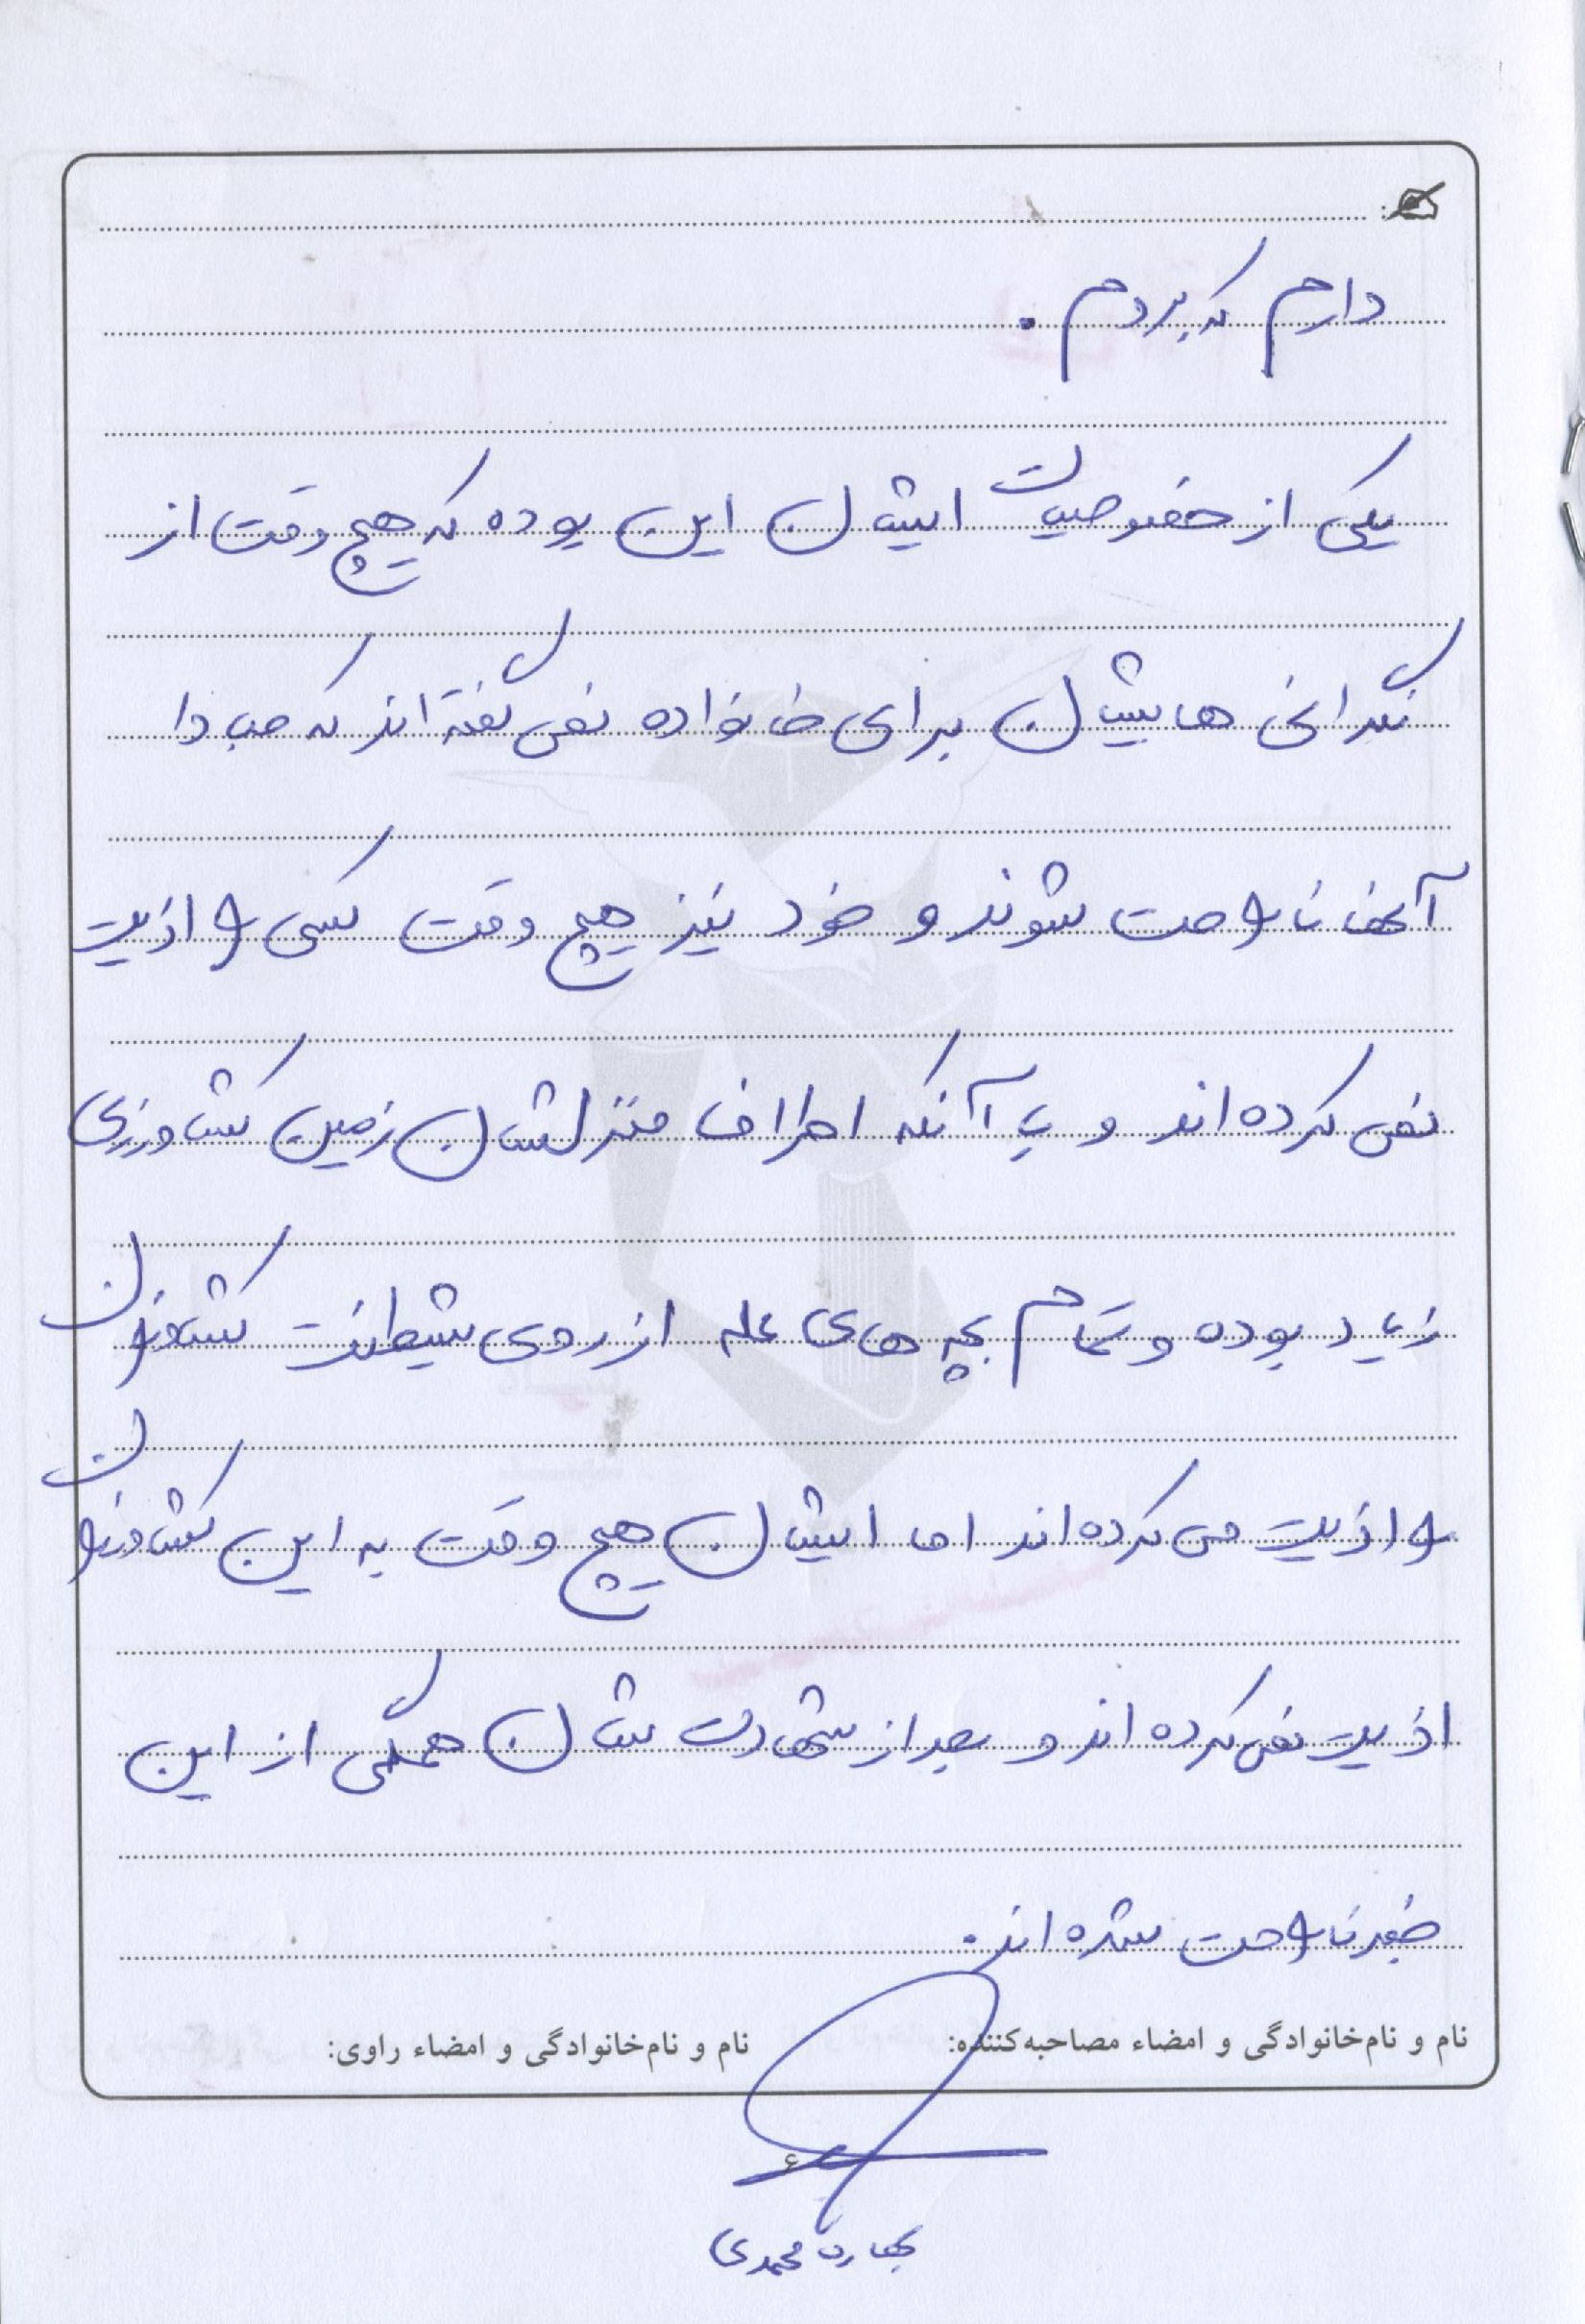 دارم که بردم.
یکی از خصوصیات ایشان این بوده که هیچ وقت از
نگرانی هایشان برای خانواده نمی گفته اند که مبادا
آنها ناراحت شوند و خود نیز هیچ وقت کسی را اذیت
نمی کرده اند و با آنکه اطراف منزلشان زمین کشاورزی
زیاد بوده و تمام بچه های محله از روی شیطنت کشاورزان
را اذیت می کرده اند اما ایشان هیچ وقت به این کشاورزان
اذیت نمی کرده اند و بعد از شهادت شان همگی از این
خبر ناراحت شده اند.
نام و نام‌خانوادگی و امضاء مصاحبه‌کننده:
نام و نام‌خانوادگی و امضاء راوی:
۶
بهاره محمدی